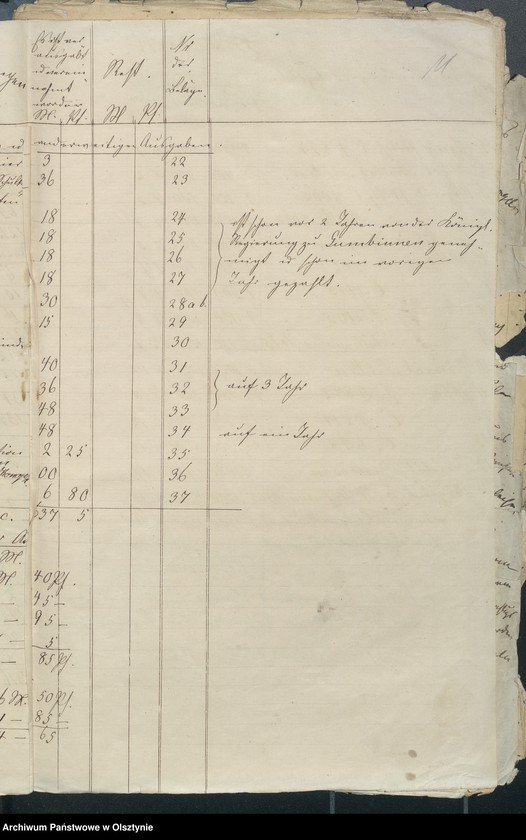 11
Es ist ver
ausgabt
Rest.
No
der
Beläge.
worden
M. Pf. M Pf.
anderweitigen Ausgaben.
3 22
36 23
18 24 ist schon vor 2 Jahren von der Königl.
18 25 Regierung zu Gumbinnen geneh-
18 26 migt u schon im vorigen
18 27 Jahr gezahlt.
30 28 a b.
15 29
30
40 31
36 32 auf 3 Jahr
48 33
48 34 auf ein Jahr
2 25 35
00 36
6 80 37
37 5
M.
40 Pf.
45 —
95 —
5
85 Pf.
M. 50 Pf.
— 85 —
— 65
Archiwum Państwowe w Olsztynie